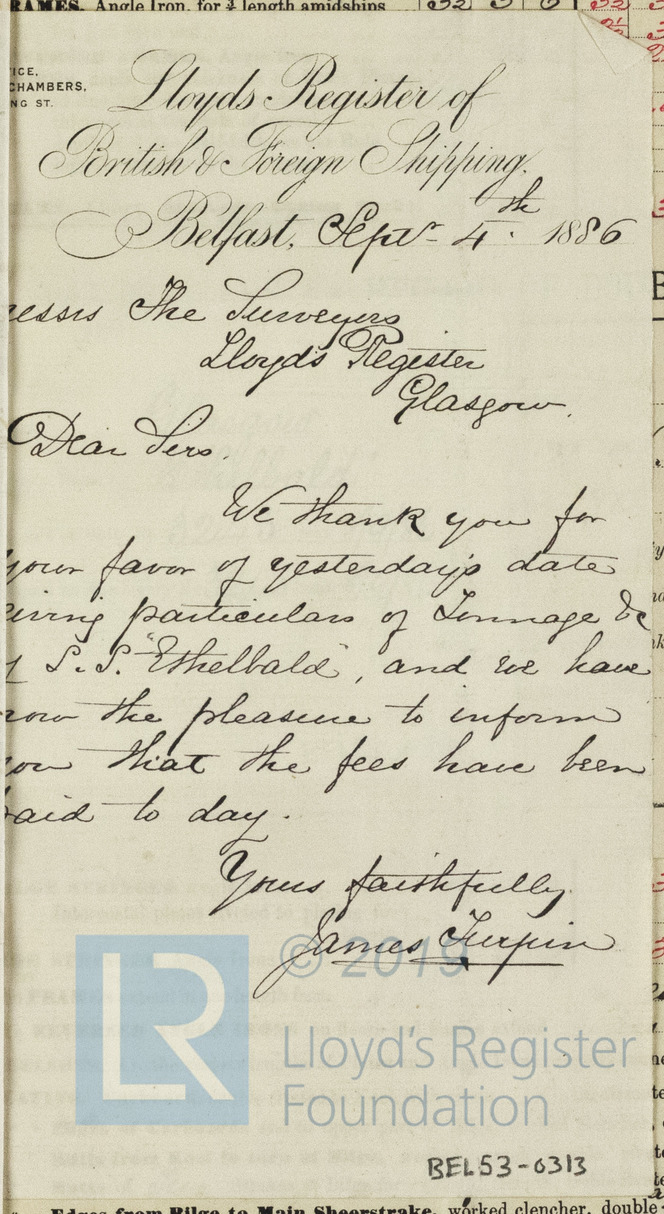 RAMES. Angle Iron, for ¾ length amidships
ICE,
CHAMBERS,
NG ST.
Lloyds Register of
British & Foreign Shipping.
Belfast, Septr 4th. 1886
essrs The Surveyors
Lloyds Register
Glasgow.
Dear Sirs.
We thank you for
your favor of yesterday's date
iving particulars of Tonnage &c
S.S. "Ethelbald", and we have
now the pleasure to inform
you that the fees have been
paid to day.
Yours faithfully
James Turpin
© 2019
LR
Lloyd's Register
Foundation
BEL53-0313
Edges from Bilge to Main Sheerstrake, worked clencher, double